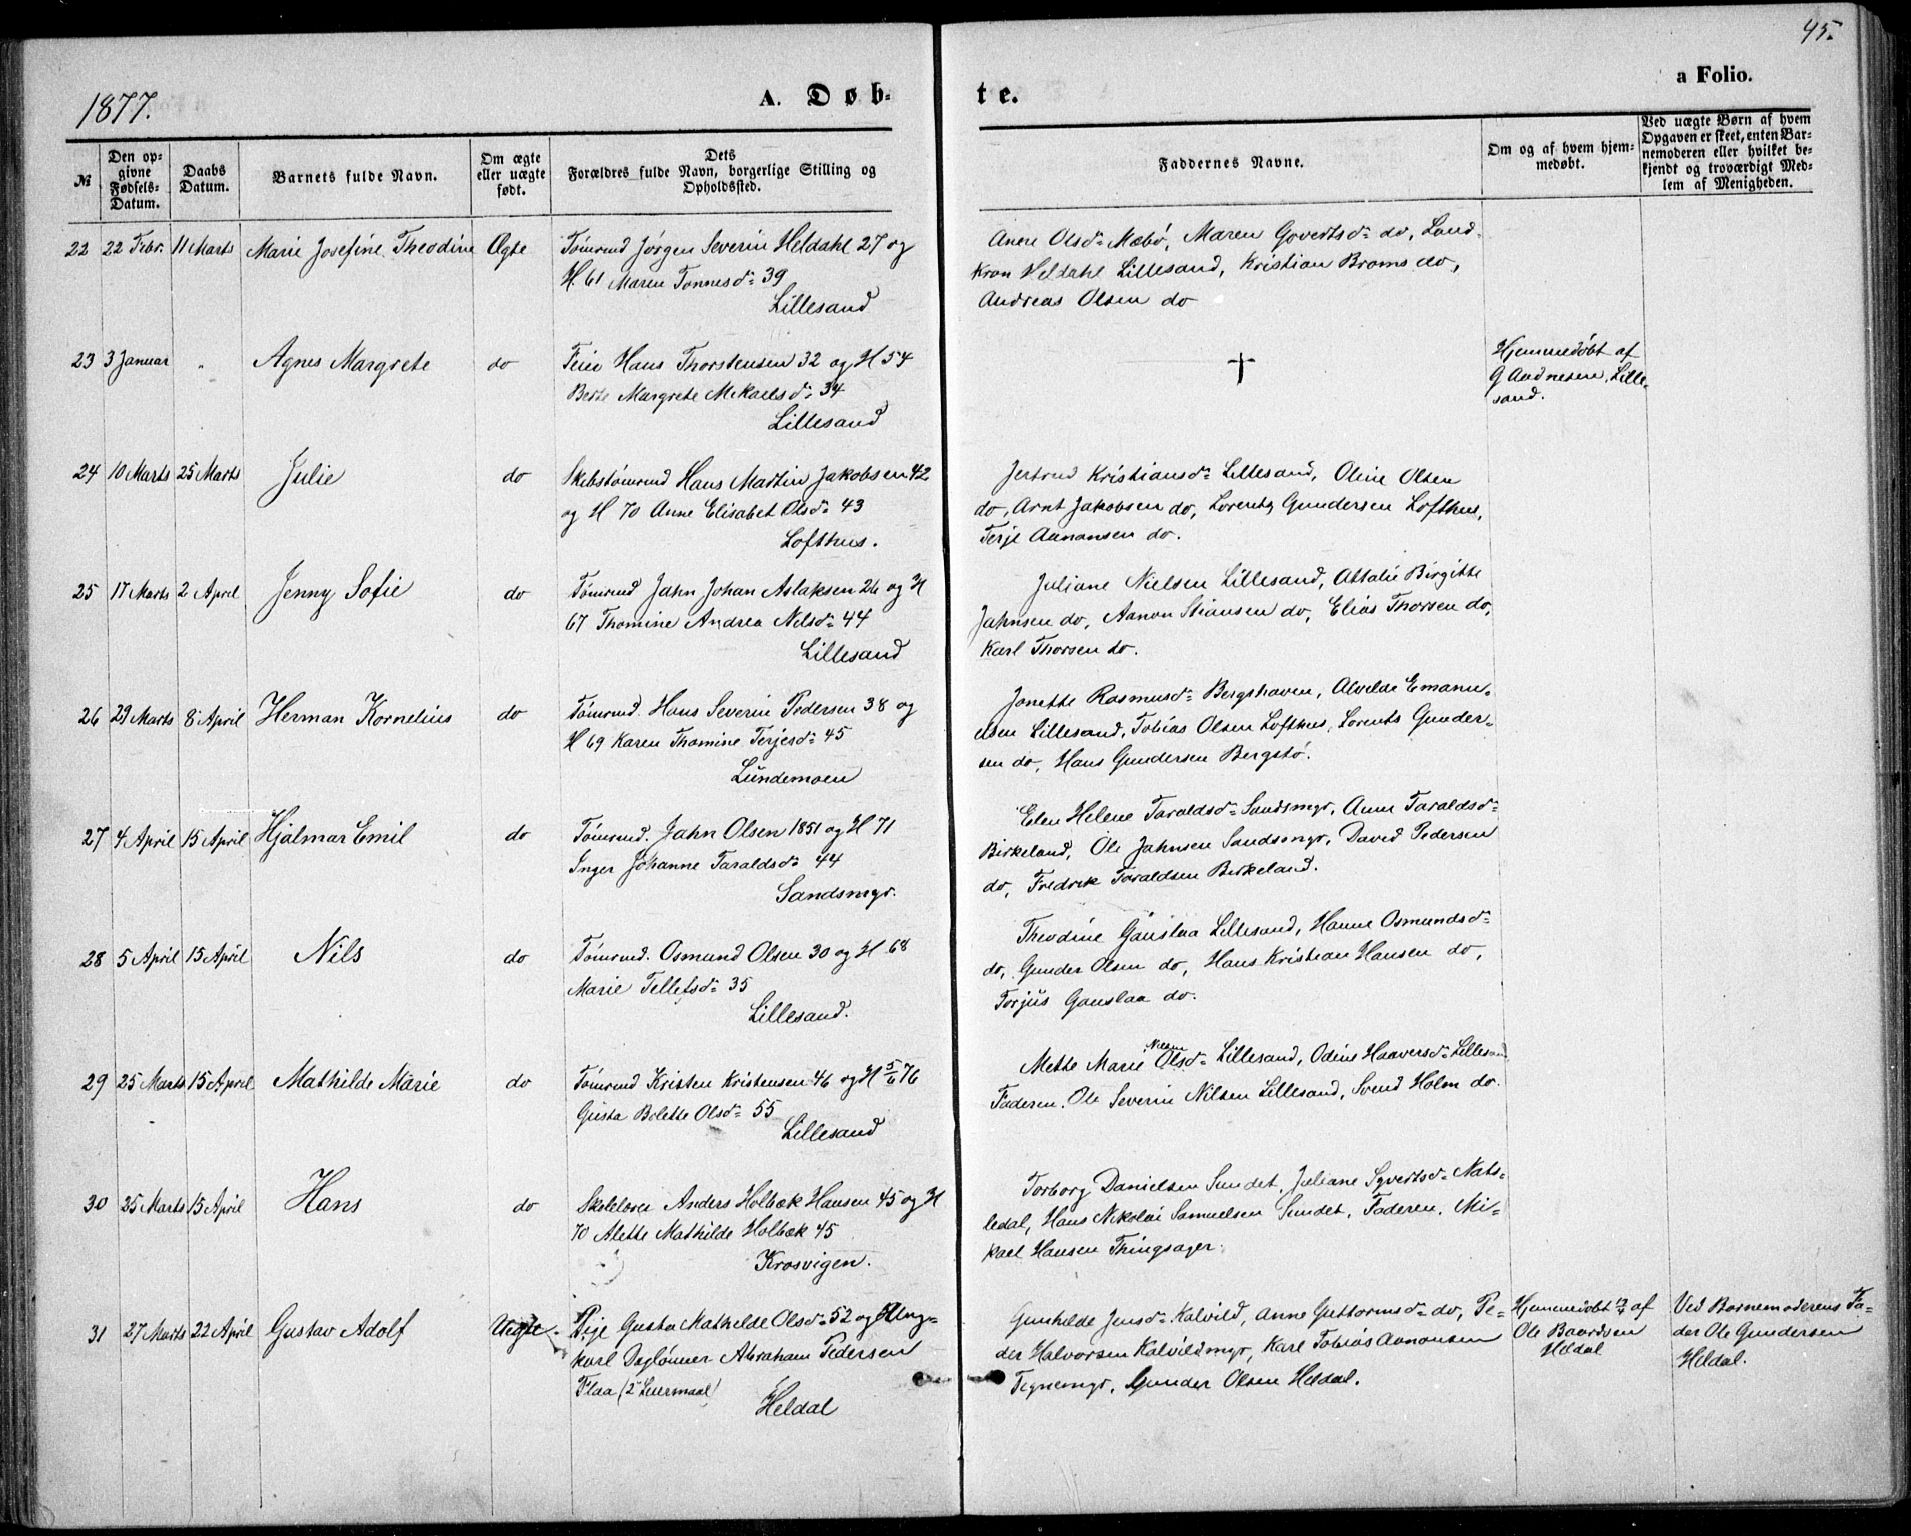 45.
1877.
A. Døb-
te.
a Folio.
№
Den op-
givne
Fødsels-
Datum.
Daabs
Datum.
Barnets fulde Navn.
Om ægte
eller uægte
født.
Dets
Forældres fulde Navn, borgerlige Stilling og
Opholdssted.
Faddernes Navne.
Om og af hvem hjem-
medøbt.
Ved uægte Børn af hvem
Opgaven er skeet, enten Bar-
nemoderen eller hvilket be-
kjendt og troværdigt Med-
lem af Menigheden.
22 22 Febr. 11 Marts Marie Josefine Theodine Ægte
Tømrmd Jørgen Severin Heldahl 27 og
H. 61 Maren Tønnesd: 39
Lillesand
Anne Olsd: Mæbø, Maren Govertsd: do, Land-
kron Heldahl Lillesand, Kristian Broms do,
Andreas Olsen do
23 3 Januar " Agnes Margrete do
Feier Hans Thorstensen 32 og H 54
Berte Margrete Mikaelsd: 34
Lillesand
†
Hjemmedøbt af
G Aadnesen, Lille-
sand.
24 10 Marts 25 Marts Julie do
Skibstømrmd Hans Martin Jakobsen 42
og H 70 Anne Elisabet Olsd: 43
Lofthus.
Jertrud Kristiansd: Lillesand, Oline Olsen
do, Arnt Jakobsen do, Lorentz Gundersen Lofthus,
Terje Aanonsen do.
25 17 Marts 2 April Jenny Sofie do
Tømrmd Jahn Johan Aslaksen 26 og H
67 Thomine Andrea Nilsd: 44
Lillesand
Juliane Nielsen Lillesand, Attalie Birgitte
Jahnsen do, Aanon Stiansen do, Elias Thorsen do,
Karl Thorsen do.
26 29 Marts 8 April Herman Kornelius do
Tømrmd. Hans Severin Pedersen 38 og
H 69 Karen Thomine Terjesd: 45
Lundemoen
Jonette Rasmusd: Bergshaven, Alvilde Emanu-
elsen Lillesand, Tobias Olsen Lofthus, Lorents Gunder-
sen do, Hans Gundersen Bergstø.
27 4 April 15 April Hjalmar Emil do
Tømrmd. Jahn Olsen 1851 og H 71
Inger Johanne Taraldsd: 44
Sandsmyr.
Elen Helene Taraldsd: Sandsmyr, Anne Taraldsd:
Birkeland, Ole Jahnsen Sandsmyr, David Pedersen
do, Fredrik Taraldsen Birkeland.
28 5 April 15 April Nils do
Tømrmd. Osmund Olsen 30 og H 68
Marie Tellefsd: 35
Lillesand.
Theodine Gauslaa Lillesand, Hanne Osmundsd:
do, Gunder Olsen do, Hans Kristian Hansen do,
Torjus Gauslaa do.
29 25 Marts 15 April Mathilde Marie do
Tømrmd Kristen Kristensen 46 og H 5/6 76
Gusta Bolette Olsd: 55
Lillesand
Nilsen
Mette Marie Olsd: Lillesand, Odine Haaversd: Lillesand
Faderen. Ole Severin Nilsen Lillesand, Svend Holm do.
30 25 Marts 15 April Hans do
Skolelærer Anders Holbæk Hansen 45 og H
70 Alette Mathilde Holbæk 45
Krosvigen.
Torborg Danielsen Sundet, Juliane Syvertsd: Nats-
ledal, Hans Nikolai Samuelsen Sundet, Faderen, Mi-
kael Hansen Thingsager.
31 27 Marts 22 April Gustav Adolf Uægte.
Pige Gusta Mathilde Olsd: 52 og Ung-
karl Daglønner Abraham Pedersen
Flaa (2 Leiermaal)
Heldal
Gunhilde Jensd: Kalvild, Anne Guttormsd: do, Pe-
der Halvorsen Kalvildmyr, Karl Tobias Aanonsen
Tegnemyr, Gunder Olsen Heldal.
Hjemmedøbt af
Ole Baardsen
Heldal
Ved Barnemoderens Fa-
der Ole Gundersen
Heldal.